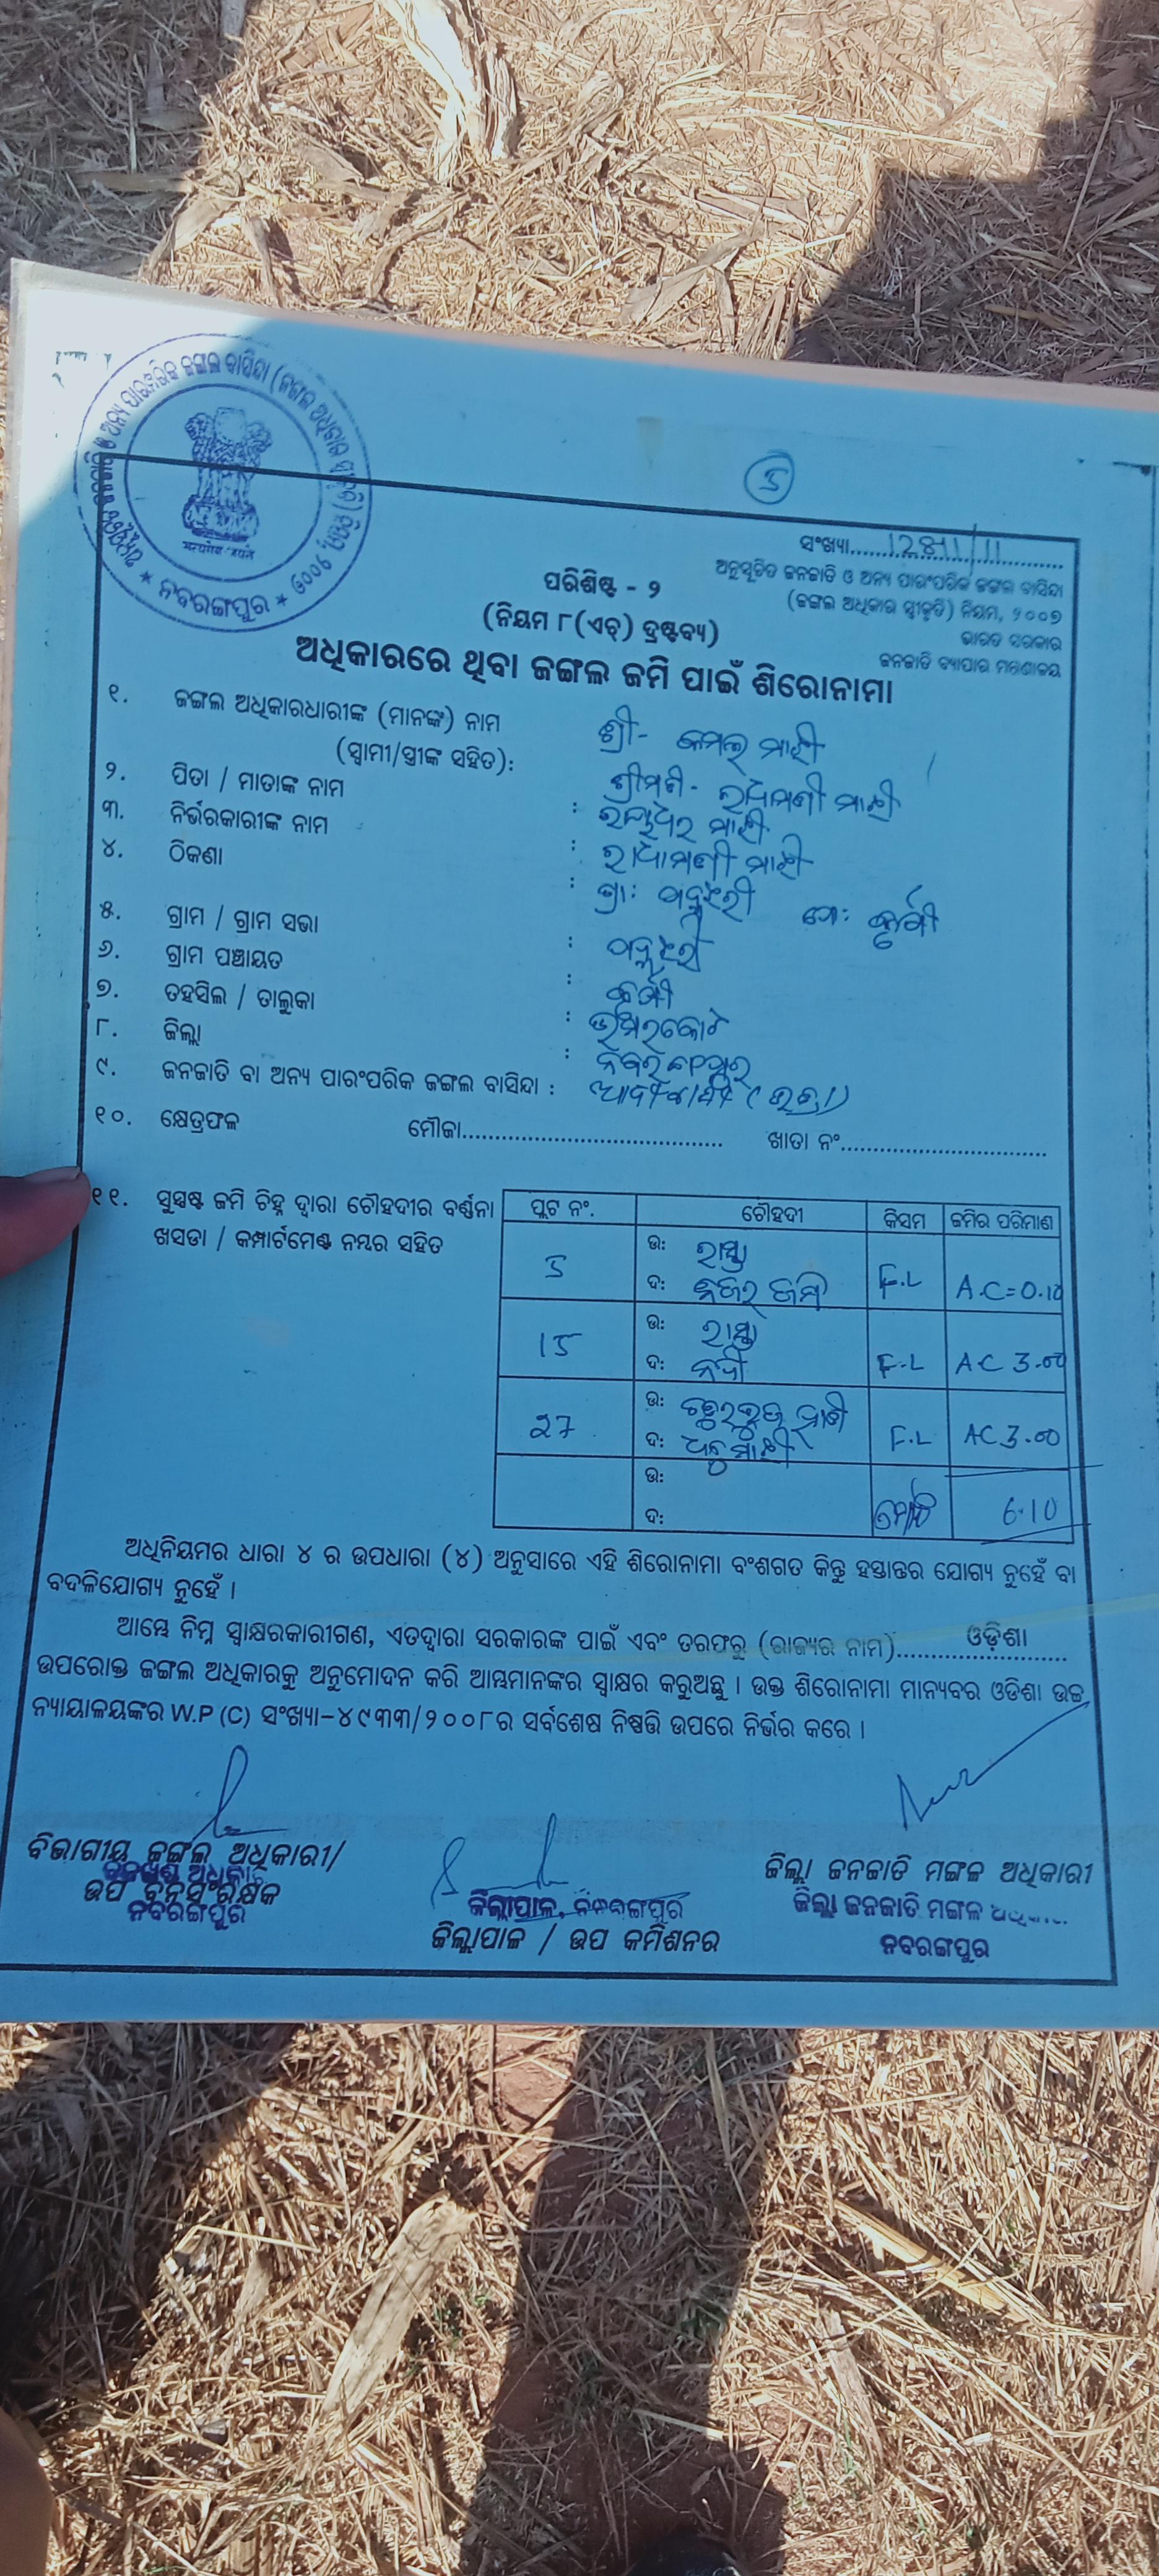 5
ସଂଖ୍ୟା.......12811/11
ଅନୁସୂଚିତ ଜନଜାତି ଓ ଅନ୍ୟ ପାରଂପରିକ ଜଙ୍ଗଲ ବାସିନ୍ଦା
(ଜଙ୍ଗଲ ଅଧିକାର ସ୍ୱୀକୃତି) ନିୟମ, ୨୦୦୭
ଭାରତ ସରକାର
ଜନଜାତି ବ୍ୟାପାର ମନ୍ତ୍ରଣାଳୟ
ନବରଙ୍ଗପୁର
ପରିଶିଷ୍ଟ - ୨
(ନିୟମ ୮(ଏଚ୍) ଦ୍ରଷ୍ଟବ୍ୟ)
ଅଧିକାରରେ ଥିବା ଜଙ୍ଗଲ ଜମି ପାଇଁ ଶିରୋନାମା
୧. ଜଙ୍ଗଲ ଅଧିକାରଧାରୀଙ୍କ (ମାନଙ୍କ) ନାମ ଶ୍ରୀ- କମଲ୍ ମାଝୀ
(ସ୍ୱାମୀ/ସ୍ତ୍ରୀଙ୍କ ସହିତ): ଶ୍ରୀମତି- ରାଧାମଣୀ ମାଝୀ
୨. ପିତା / ମାତାଙ୍କ ନାମ : ମାଝୀ
୩. ନିର୍ଭରକାରୀଙ୍କ ନାମ : ରାଧାମଣୀ ମାଝୀ
୪. ଠିକଣା : ଗ୍ରା: ପୋ:
୫. ଗ୍ରାମ / ଗ୍ରାମ ସଭା :
୬. ଗ୍ରାମ ପଞ୍ଚାୟତ :
୭. ତହସିଲ / ତାଲୁକା : ଉମରକୋଟ
୮. ଜିଲ୍ଲା : ନବରଙ୍ଗପୁର
୯. ଜନଜାତି ବା ଅନ୍ୟ ପାରଂପରିକ ଜଙ୍ଗଲ ବାସିନ୍ଦା : ଆଦିବାସୀ
୧୦. କ୍ଷେତ୍ରଫଳ ମୌଜା....................................... ଖାତା ନଂ...............................
୧୧. ସୁସ୍ପଷ୍ଟ ଜମି ଚିହ୍ନ ଦ୍ୱାରା ଚୌହଦୀର ବର୍ଣ୍ଣନା
ଖସଡା / କମ୍ପାର୍ଟମେଣ୍ଟ ନମ୍ବର ସହିତ
ପ୍ଲଟ ନଂ. ଚୌହଦୀ କିସମ ଜମିର ପରିମାଣ
5 ଉ: ରାସ୍ତା F.L A.C=0.10
ଦ: ନିଜର ଜମି
15 ଉ: ରାସ୍ତା F.L AC 3.00
ଦ: ନଦୀ
27 ଉ: F.L AC 3.00
ଦ: ଧନୁ ମାଝୀ
ଉ: ମୋଟ 6.10
ଦ:
ଅଧିନିୟମର ଧାରା ୪ ର ଉପଧାରା (୪) ଅନୁସାରେ ଏହି ଶିରୋନାମା ବଂଶଗତ କିନ୍ତୁ ହସ୍ତାନ୍ତର ଯୋଗ୍ୟ ନୁହେଁ ବା
ବଦଳିଯୋଗ୍ୟ ନୁହେଁ ।
ଆମ୍ଭେ ନିମ୍ନ ସ୍ୱାକ୍ଷରକାରୀଗଣ, ଏତଦ୍ୱାରା ସରକାରଙ୍କ ପାଇଁ ଏବଂ ତରଫରୁ (ରାଜ୍ୟର ନାମ)..........ଓଡ଼ିଶା..........
ଉପରୋକ୍ତ ଜଙ୍ଗଲ ଅଧିକାରକୁ ଅନୁମୋଦନ କରି ଆମ୍ଭମାନଙ୍କର ସ୍ୱାକ୍ଷର କରୁଅଛୁ । ଉକ୍ତ ଶିରୋନାମା ମାନ୍ୟବର ଓଡିଶା ଉଚ୍ଚ
ନ୍ୟାୟାଳୟଙ୍କର W.P (C) ସଂଖ୍ୟା-୪୯୩୩/୨୦୦୮ର ସର୍ବଶେଷ ନିଷ୍ପତ୍ତି ଉପରେ ନିର୍ଭର କରେ ।
ବିଭାଗୀୟ ଜଙ୍ଗଲ ଅଧିକାରୀ/
ଉପ ବନସଂରକ୍ଷକ
ନବରଙ୍ଗପୁର
ଜିଲ୍ଲାପାଳ, ନବରଙ୍ଗପୁର
ଜିଲ୍ଲାପାଳ / ଉପ କମିଶନର
ଜିଲ୍ଲା ଜନଜାତି ମଙ୍ଗଳ ଅଧିକାରୀ
ଜିଲ୍ଲା ଜନଜାତି ମଙ୍ଗଳ
ନବରଙ୍ଗପୁର